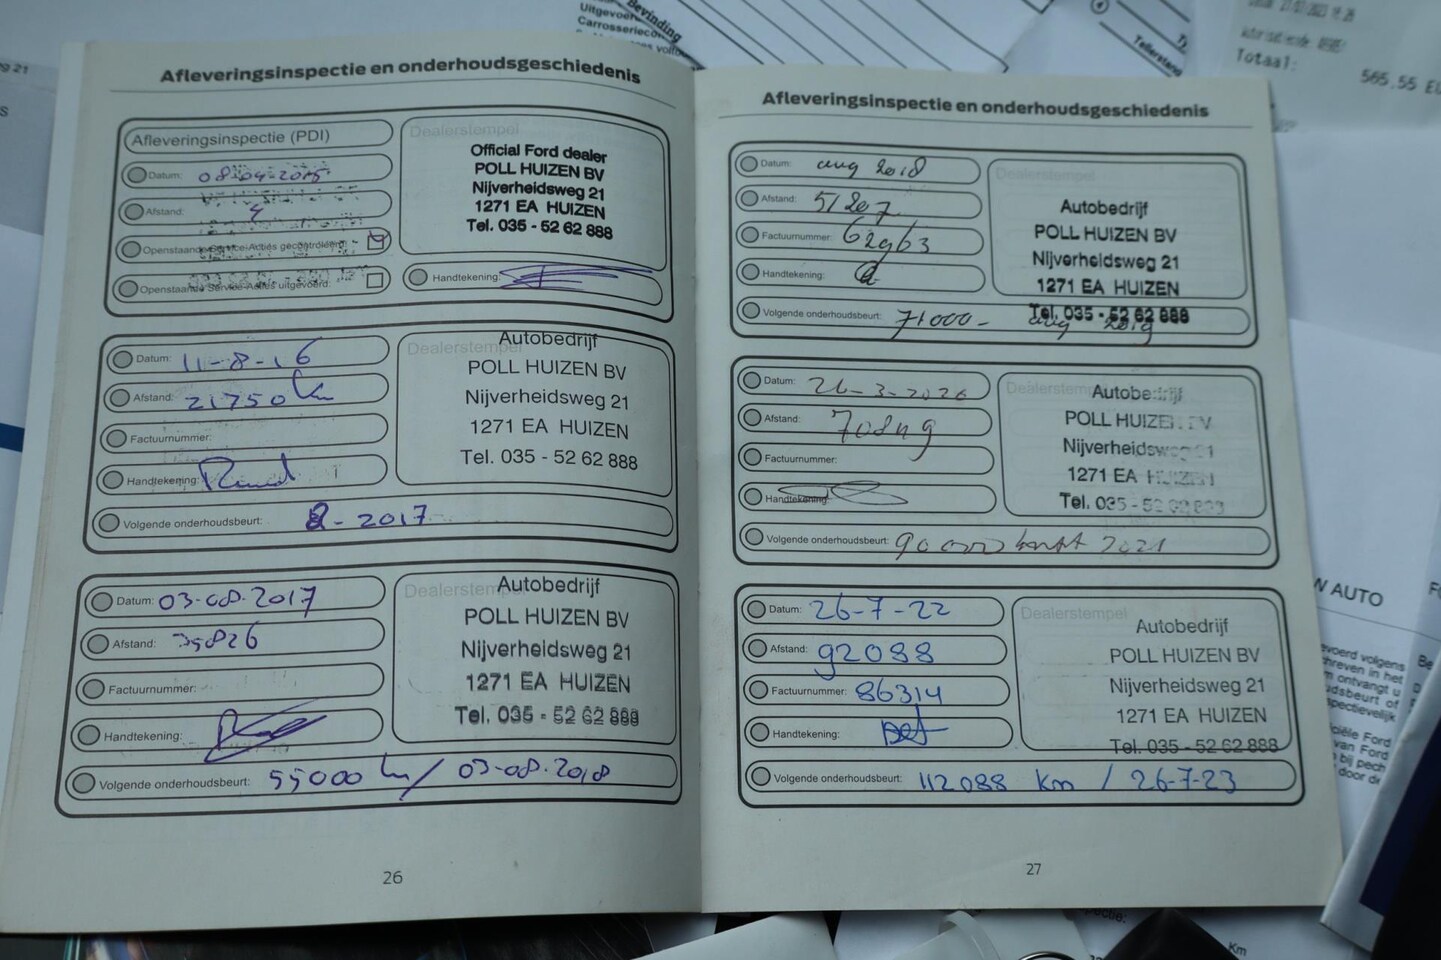 Afleveringsinspectie en onderhoudsgeschiedenis
Afleveringsinspectie (PDI)
Datum: 08-04-2015
Afstand: 4
Openstaande Service-Acties gecontroleerd:
Openstaande Service-Acties uitgevoerd:
Dealerstempel
Official Ford dealer
POLL HUIZEN BV
Nijverheidsweg 21
1271 EA HUIZEN
Tel. 035 - 52 62 888
Handtekening:
Datum: 11-8-16
Afstand: 21750 km
Factuurnummer:
Handtekening:
Volgende onderhoudsbeurt: 8-2017
Dealerstempel
Autobedrijf
POLL HUIZEN BV
Nijverheidsweg 21
1271 EA HUIZEN
Tel. 035 - 52 62 888
Datum: 03-08-2017
Afstand: 35826
Factuurnummer:
Handtekening:
Volgende onderhoudsbeurt: 55000 km / 03-08-2018
Dealerstempel
Autobedrijf
POLL HUIZEN BV
Nijverheidsweg 21
1271 EA HUIZEN
Tel. 035 - 52 62 888
26
Afleveringsinspectie en onderhoudsgeschiedenis
Datum: aug 2018
Afstand: 51207
Factuurnummer: 62963
Handtekening:
Volgende onderhoudsbeurt: 71000- aug 2019
Dealerstempel
Autobedrijf
POLL HUIZEN BV
Nijverheidsweg 21
1271 EA HUIZEN
Tel. 035 - 52 62 888
Datum:
Afstand:
Factuurnummer:
Handtekening:
Volgende onderhoudsbeurt: 2021
Dealerstempel
Autobedrijf
POLL HUIZEN BV
Nijverheidsweg 21
1271 EA HUIZEN
Tel. 035 - 52 62 888
Datum: 26-7-22
Afstand: 92088
Factuurnummer: 86314
Handtekening:
Volgende onderhoudsbeurt: 112088 km / 26-7-23
Dealerstempel
Autobedrijf
POLL HUIZEN BV
Nijverheidsweg 21
1271 EA HUIZEN
Tel. 035 - 52 62 888
27
Bevinding
Tellerstand
Totaal: 565,55
W AUTO
Km